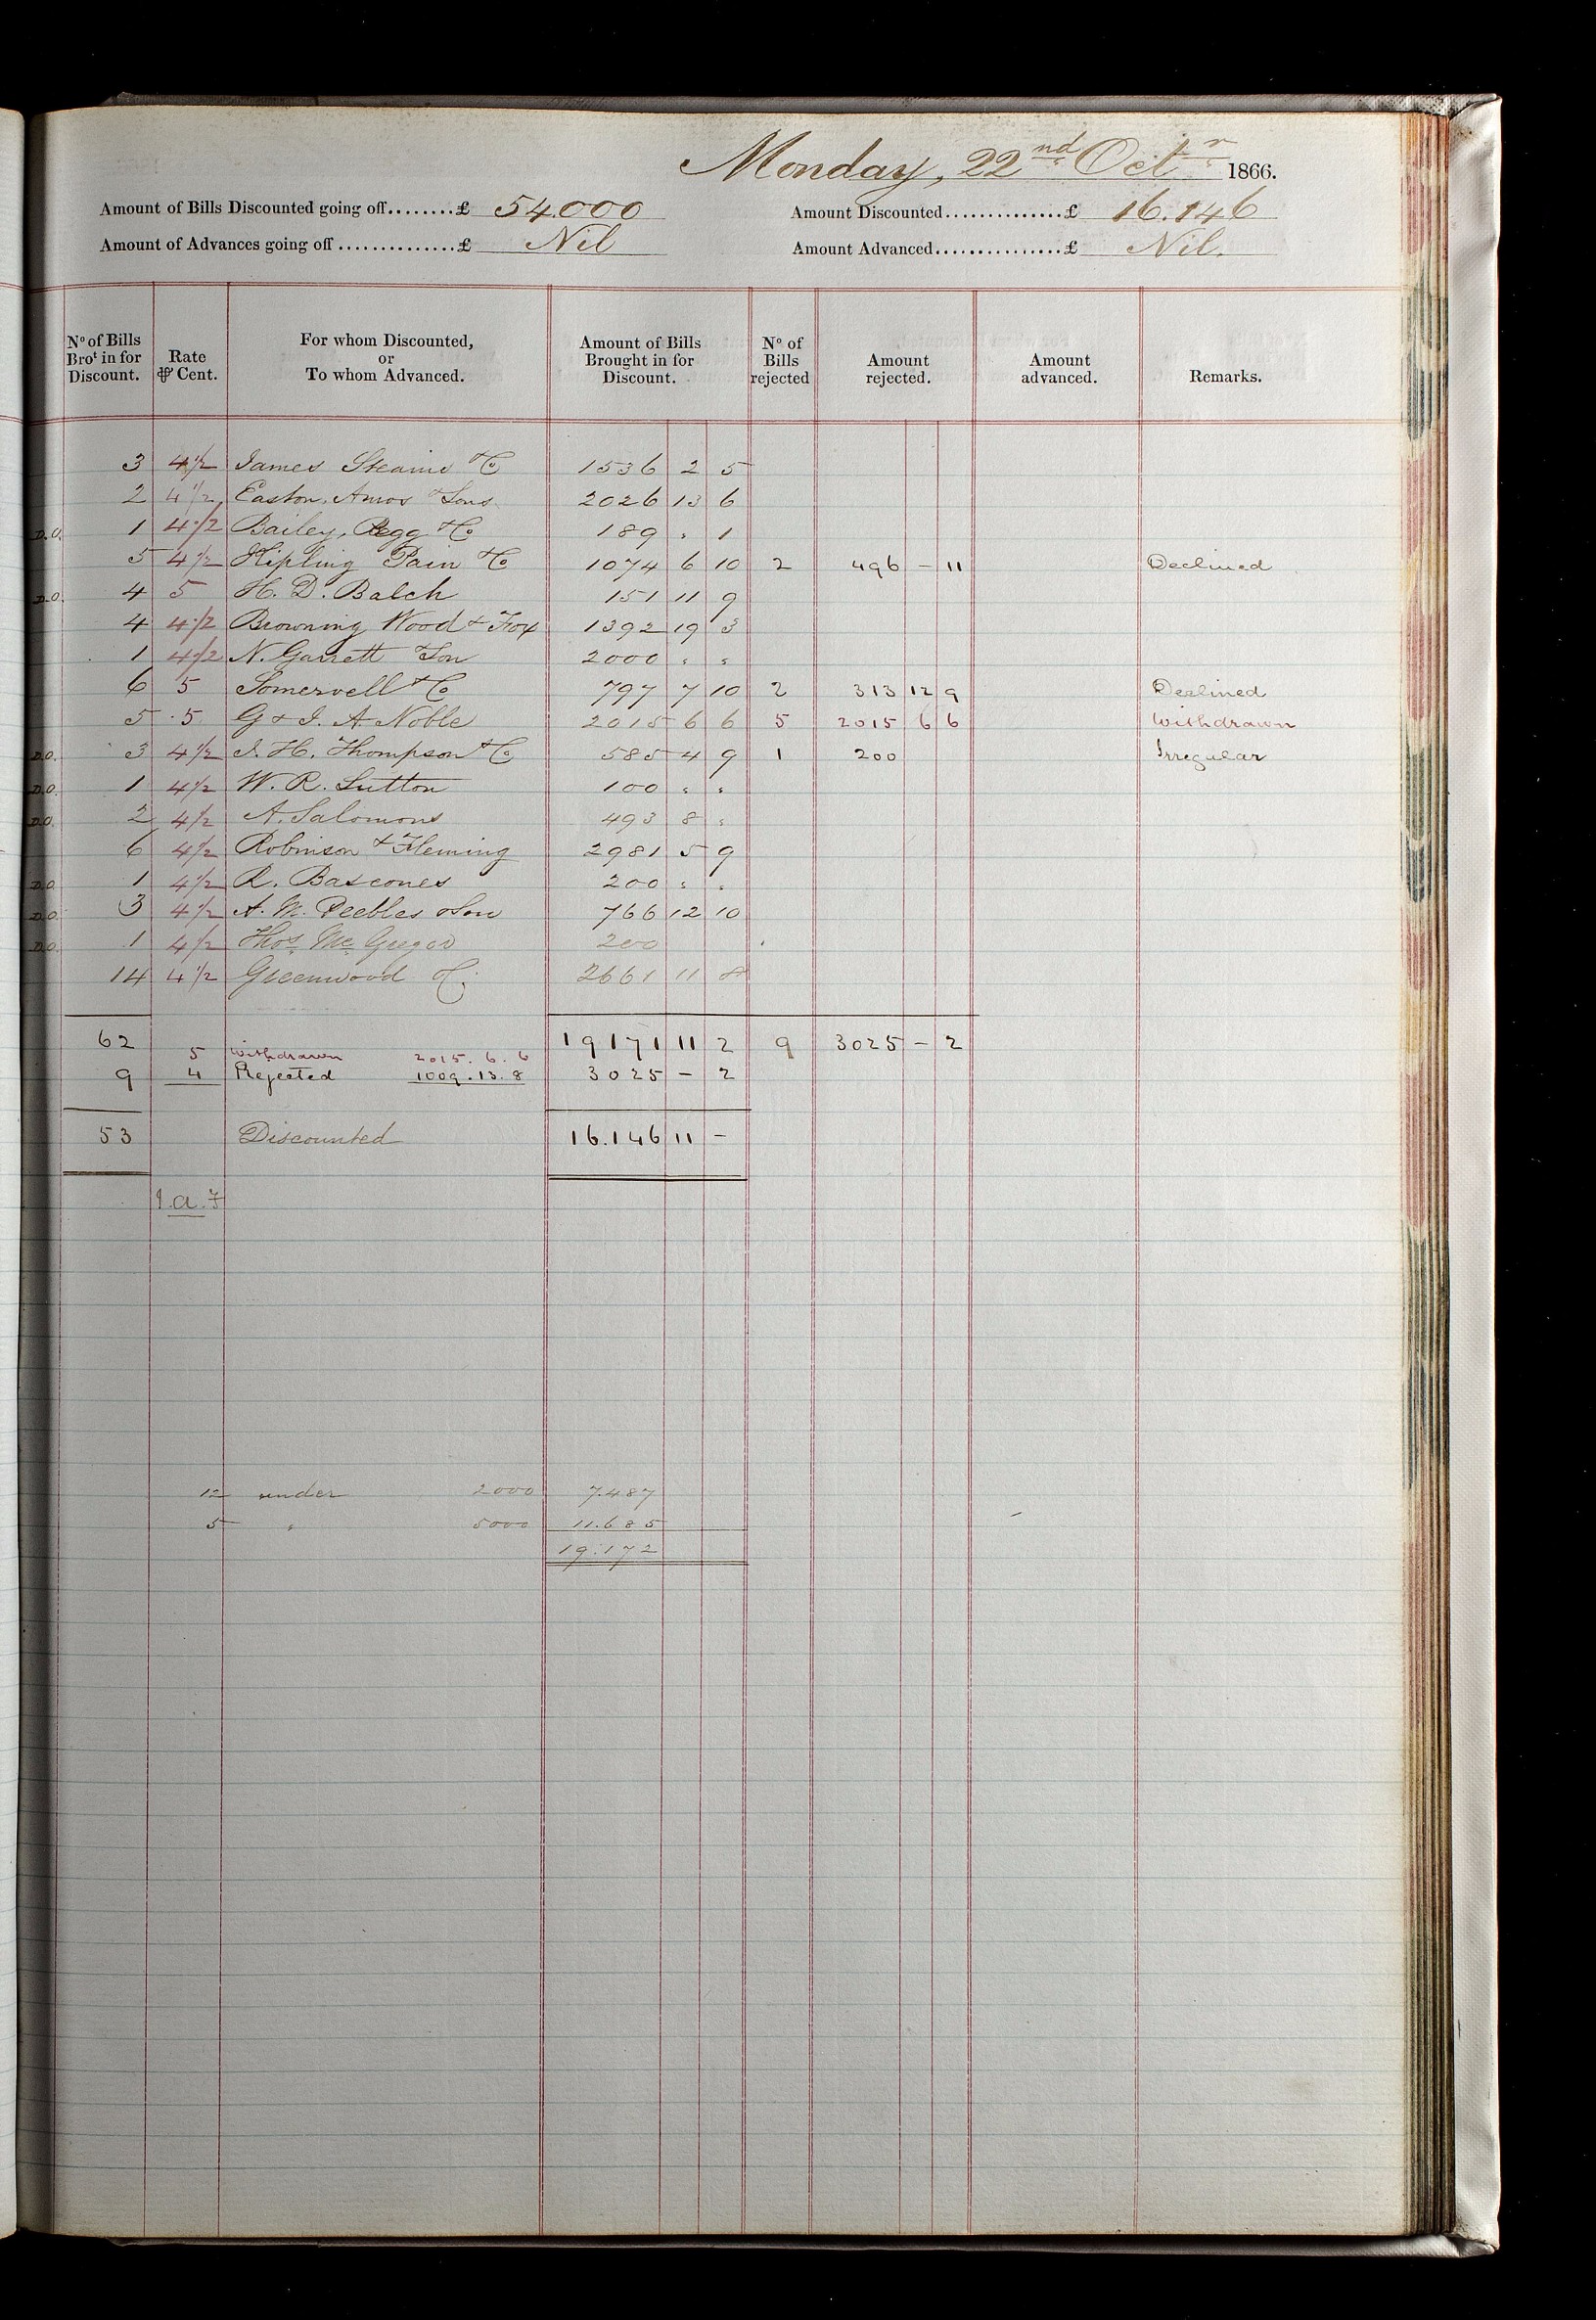 Monday, 22nd Octr 1866.
Amount of Bills Discounted going off........£ 54.000 Amount Discounted..............£ 16.146
Amount of Advances going off...............£ Nil Amount Advanced................£ Nil.
No of Bills Brot in for Discount. Rate ⅌ Cent. For whom Discounted, or To whom Advanced. Amount of Bills Brought in for Discount. No of Bills rejected Amount rejected. Amount advanced. Remarks.
3 4½ James Stearns & Co 1536 2 5
2 4½ Easton, Amos & Sons 2026 13 6
D.O. 1 4½ Bailey, Pegg & Co 189 " 1
5 4½ Kipling Pain & Co 1074 6 10 2 496 – 11 Declined
D.O. 4 5 H. D. Balch 151 11 9
4 4½ Browning Wood & Fox 1392 19 3
1 4½ N. Garrett & Son 2000 " "
6 5 Somervell & Co 797 7 10 2 313 12 9 Declined
5 5 G & J. A. Noble 2015 6 6 5 2015 6 6 Withdrawn
D.O. 3 4½ J. H. Thompson & Co 585 4 9 1 200 Irregular
D.O. 1 4½ W. R. Sutton 100 " "
D.O. 2 4½ A. Salomons 493 8 "
6 4½ Robinson & Fleming 2981 5 9
D.O. 1 4½ R. Bascones 200 " "
D.O. 3 4½ A. M. Peebles & Son 766 12 10
D.O. 1 4½ Thos Mc Gregor 200
14 4½ Greenwood & Co. 2661 11 8
62 19171 11 2 9 3025 – 2
5 Withdrawn 2015. 6. 6
9 4 Rejected 1009. 13. 8 3025 – 2
53 Discounted 16.146 11 –
12 under 2000 7.487
5 " 5000 11.685
19.172